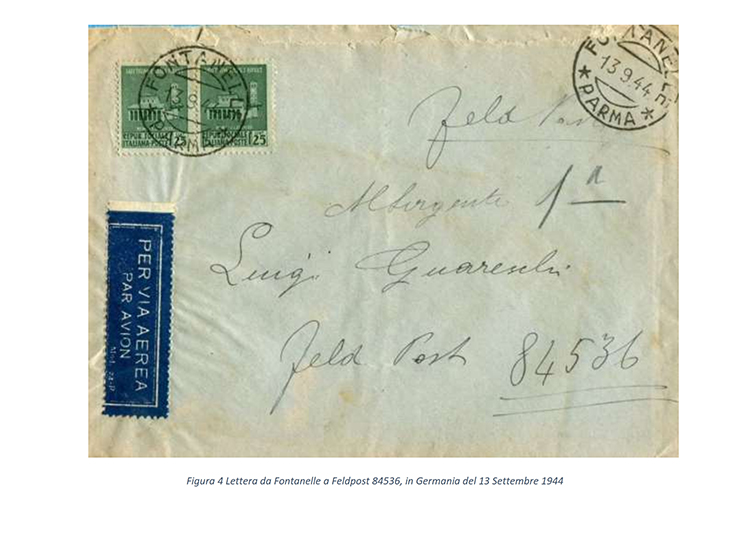 FONTANELLE
13.9.44
PARMA
REPUB. SOCIALE
ITALIANA-POSTE
25
REPUB. SOCIALE
ITALIANA-POSTE
25
FONTANELLE
13.9.44
* PARMA *
Feld Post
Luigi Guareschi
Feld Post 84536
PER VIA AEREA
PAR AVION
Figura 4 Lettera da Fontanelle a Feldpost 84536, in Germania del 13 Settembre 1944